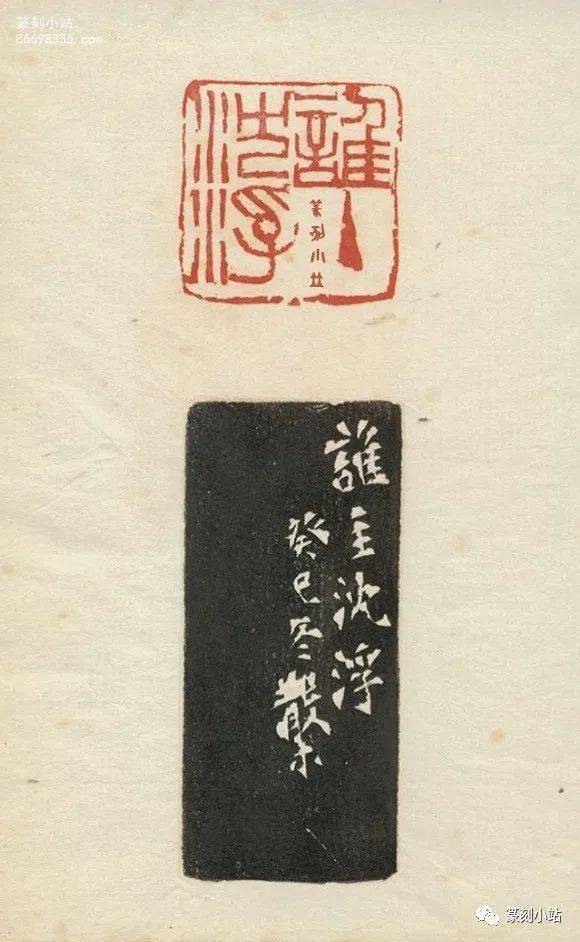 篆刻小站
86698355.com
誰主
沈浮
篆刻小站
誰主沈浮
癸巳冬散木
篆刻小站